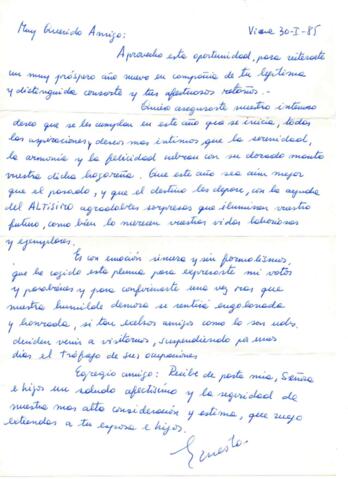 Muy Querido Amigo: Viena 30-I-85
Aprovecho esta oportunidad, para reiterarte
un muy próspero año nuevo en compañía de tu legítima
y distinguida consorte y tus afectuosos retoños.-
Quiero asegurarte nuestro intenso
deseo que se les cumplan en este año que se inicia, todas
las aspiraciones y deseos mas intimos que la serenidad,
la armonia y la felicidad cubran con su dorado manto
vuestra dicha hogareña. Que este año sea aún mejor
que el pasado, y que el destino les depare, con la ayuda
del ALTISIMO agradables sorpresas que iluminen vuestro
futuro, como bien lo merecen vuestras vidas laboriosas
y ejemplares.
Es con emoción sincera y sin formulismos,
que he cogido esta pluma para expresarte mi votos
y parabienes y para confirmarte una vez mas que
nuestra humilde morada se sentirá engalanada
y honrada, si tan excelsos amigos como lo son uds.
deciden venir a visitarnos, suspendiendo por unos
días el tráfago de sus ocupaciones
Egregio amigo: Recibe de parte mia, Señora
e hijos un saludo afectisimo y la seguridad de
nuestra mas alta consideración y estima, que ruego
extiendas a tu esposa e hijos.
Ernesto.